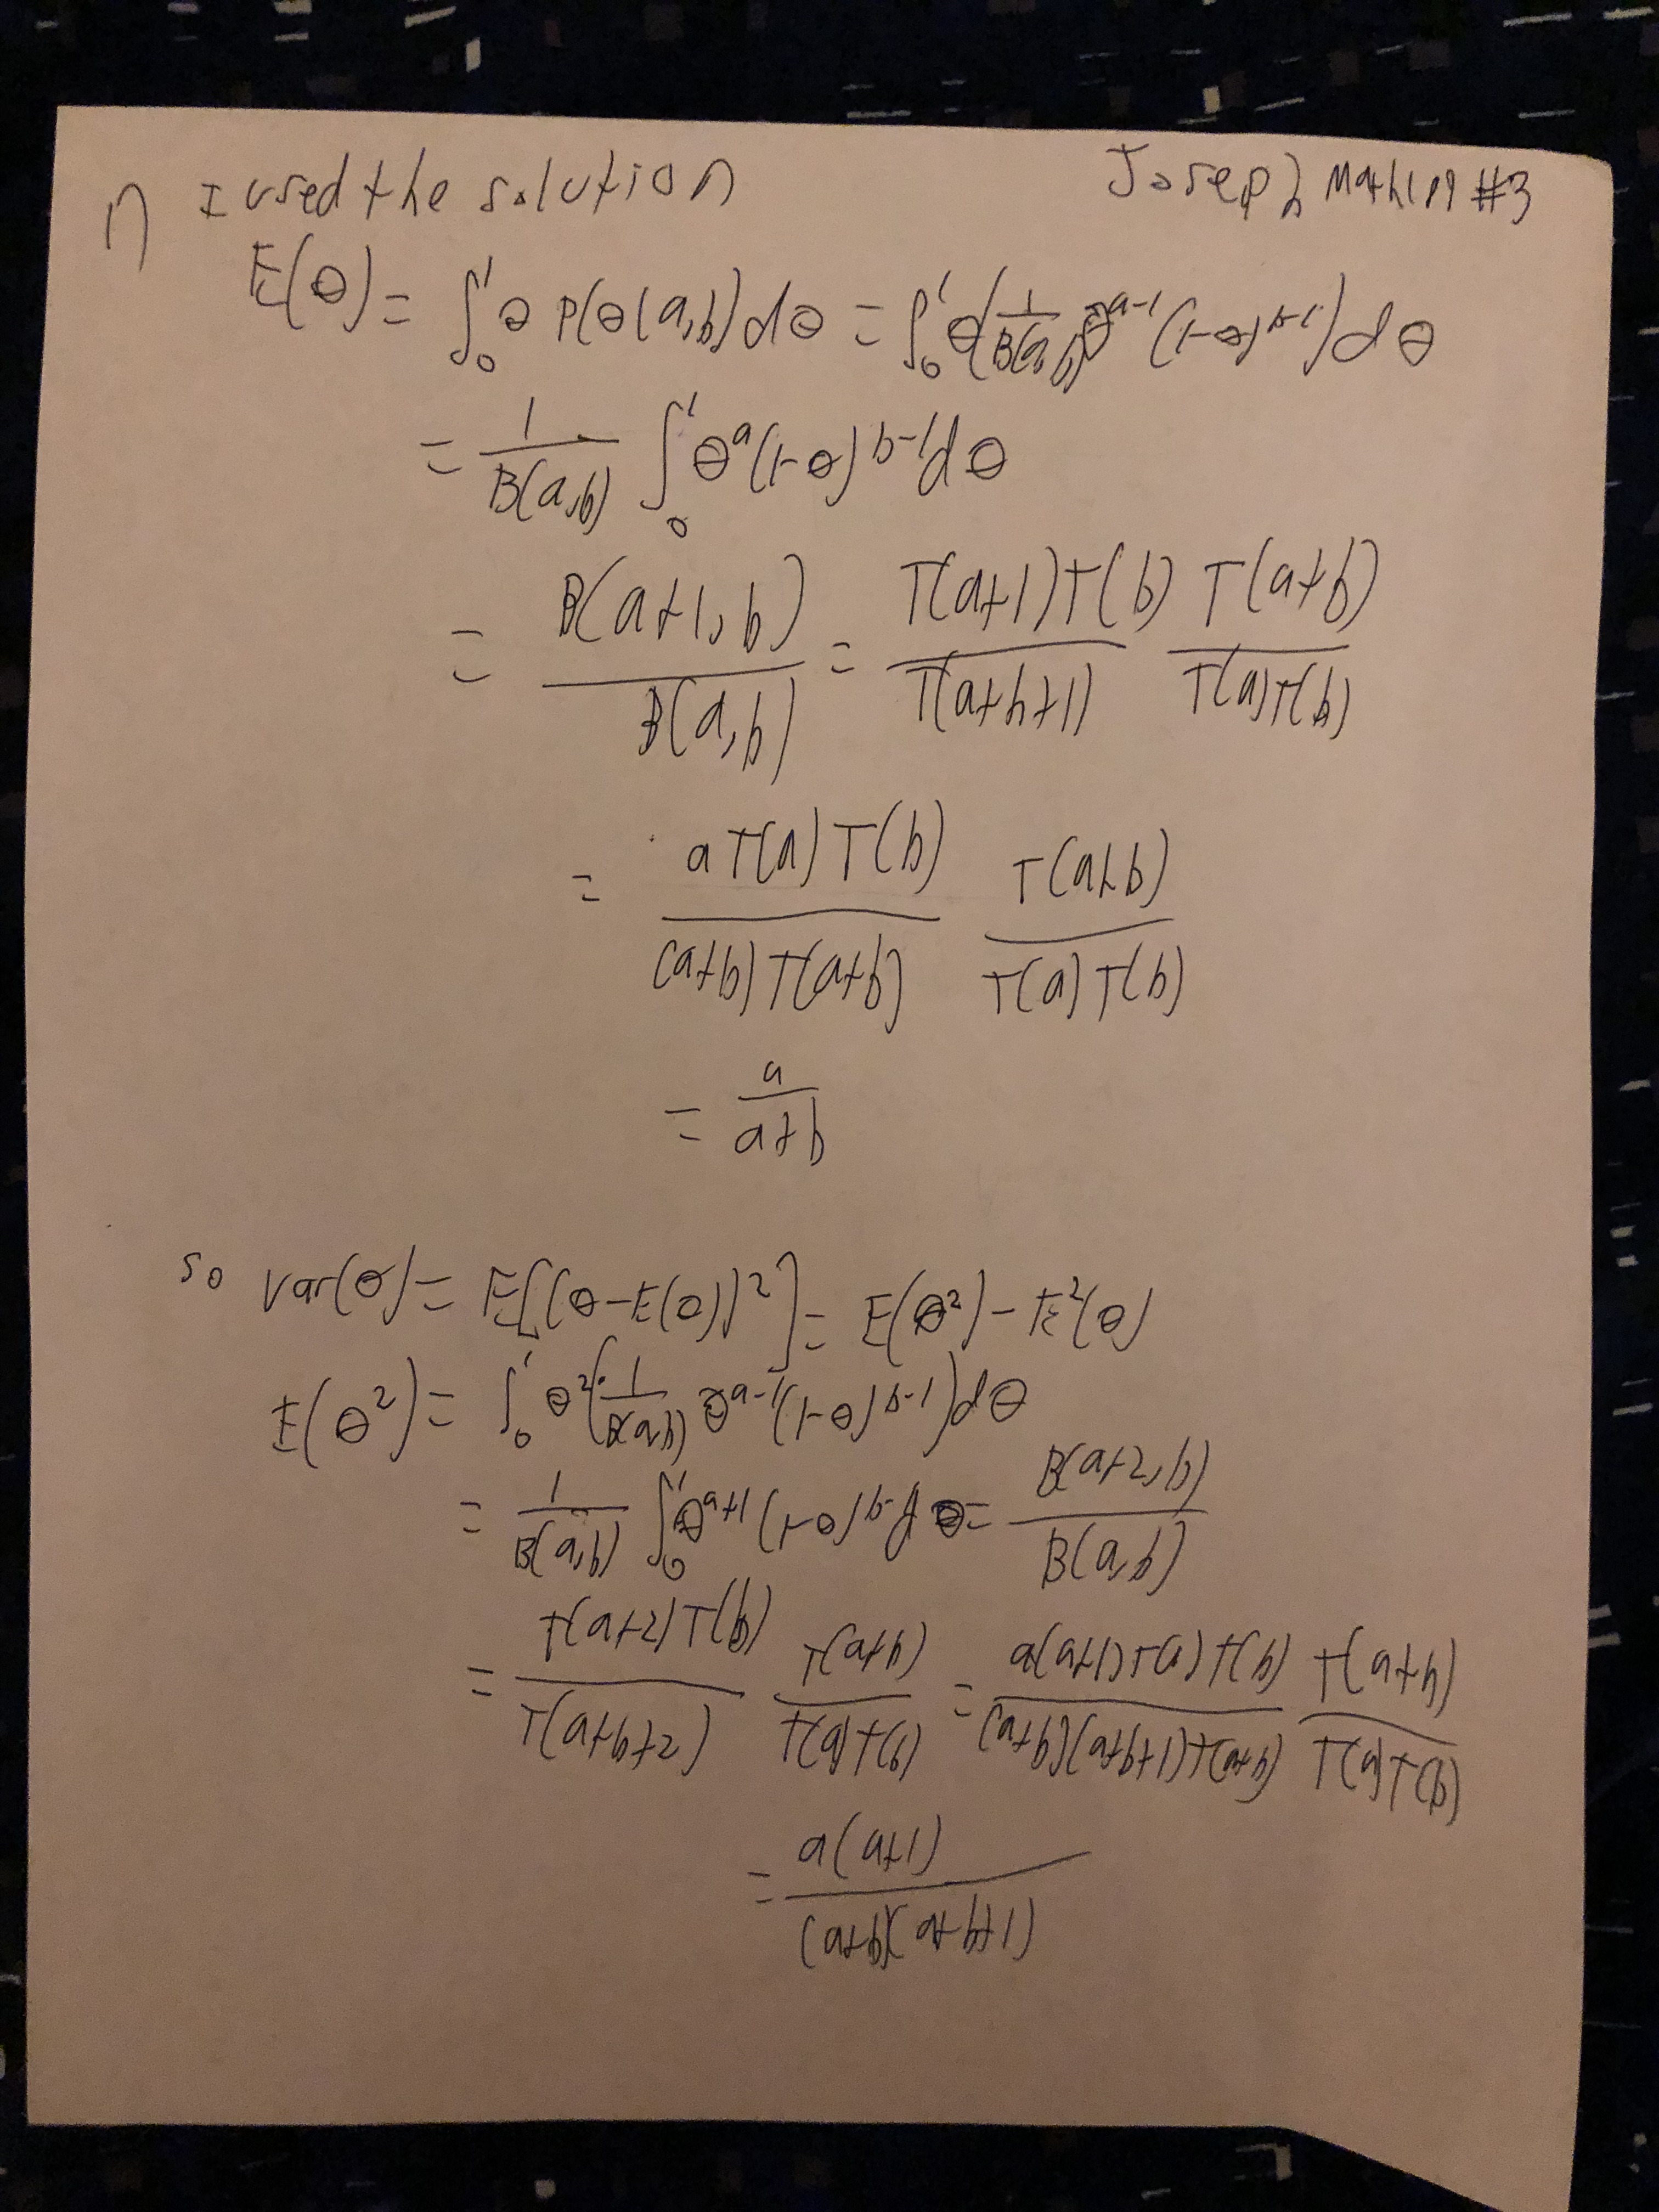 1) I used the solution
Joseph Math #3
E(θ) = ∫₀¹ θ P(θ|a,b) dθ = ∫₀¹ θ(1/B(a,b) θ^(a-1) (1-θ)^(b-1)) dθ
= 1/B(a,b) ∫₀¹ θ^a (1-θ)^(b-1) dθ
= B(a+1,b)/B(a,b) = T(a+1)T(b)/T(a+b+1) T(a+b)/T(a)T(b)
= aT(a)T(b)/(a+b)T(a+b) T(a+b)/T(a)T(b)
= a/a+b
so var(θ) = E[(θ-E(θ))²] = E(θ²) - E²(θ)
E(θ²) = ∫₀¹ θ²(1/B(a,b) θ^(a-1) (1-θ)^(b-1)) dθ
= 1/B(a,b) ∫₀¹ θ^(a+1) (1-θ)^(b-) dθ = B(a+2,b)/B(a,b)
= T(a+2)T(b)/T(a+b+2) T(a+b)/T(a)T(b) = a(a+1)T(a)T(b)/(a+b)(a+b+1)T(a+b) T(a+b)/T(a)T(b)
= a(a+1)/(a+b)(a+b+1)